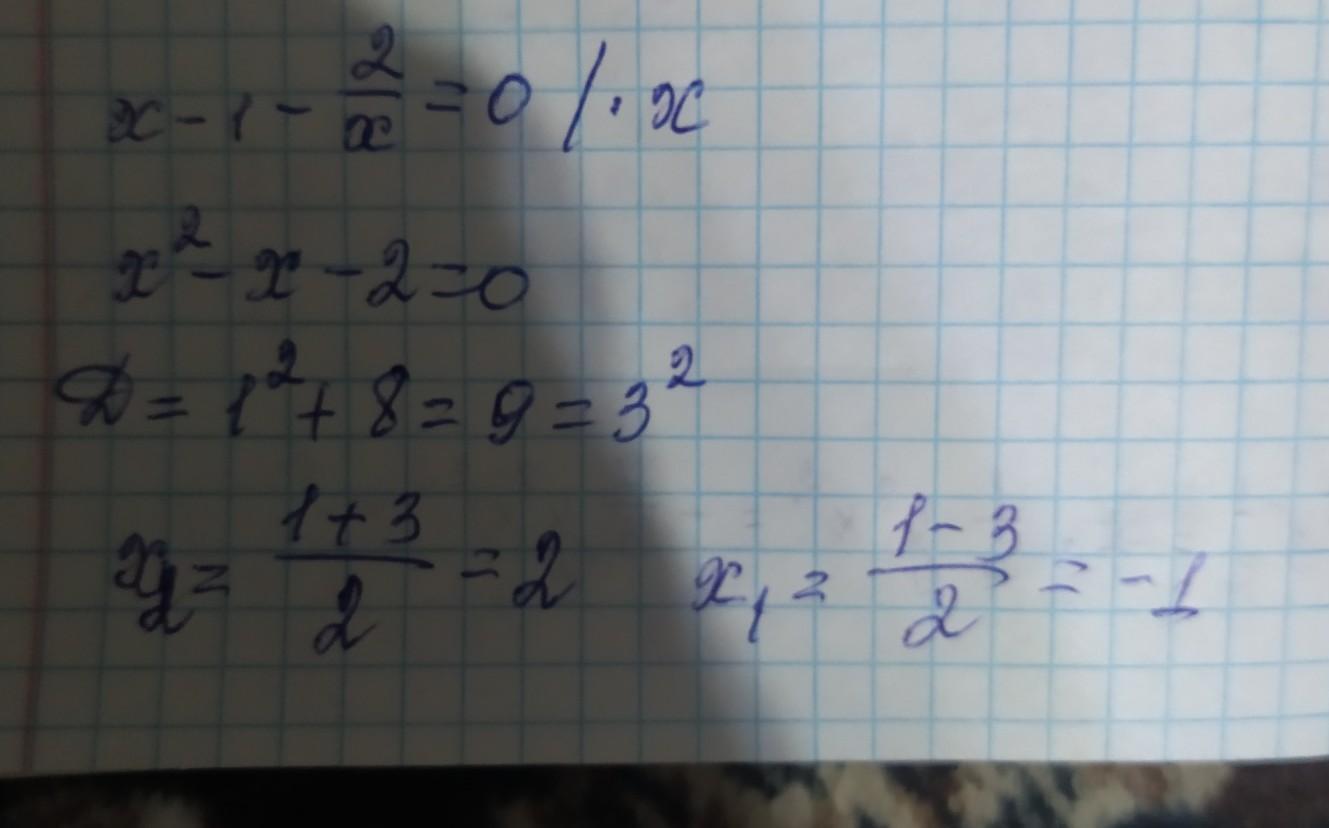 x - 1 - 2/x = 0 / · x
x² - x - 2 = 0
D = 1² + 8 = 9 = 3²
x₂ = (1 + 3)/2 = 2 x₁ = (1 - 3)/2 = -1